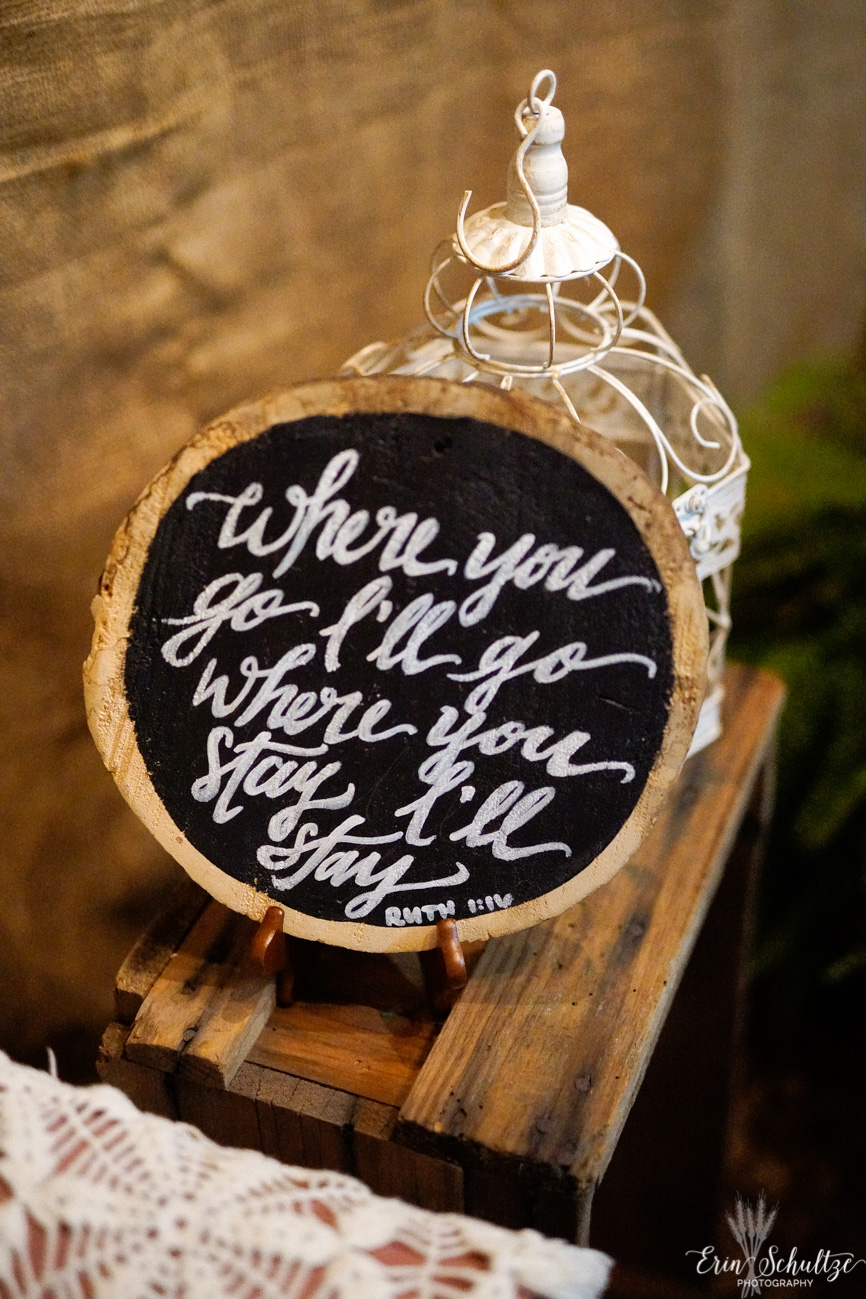 Where you
go I'll go
where you
stay I'll
stay
RUTH 1:16
Erin Schultze
PHOTOGRAPHY